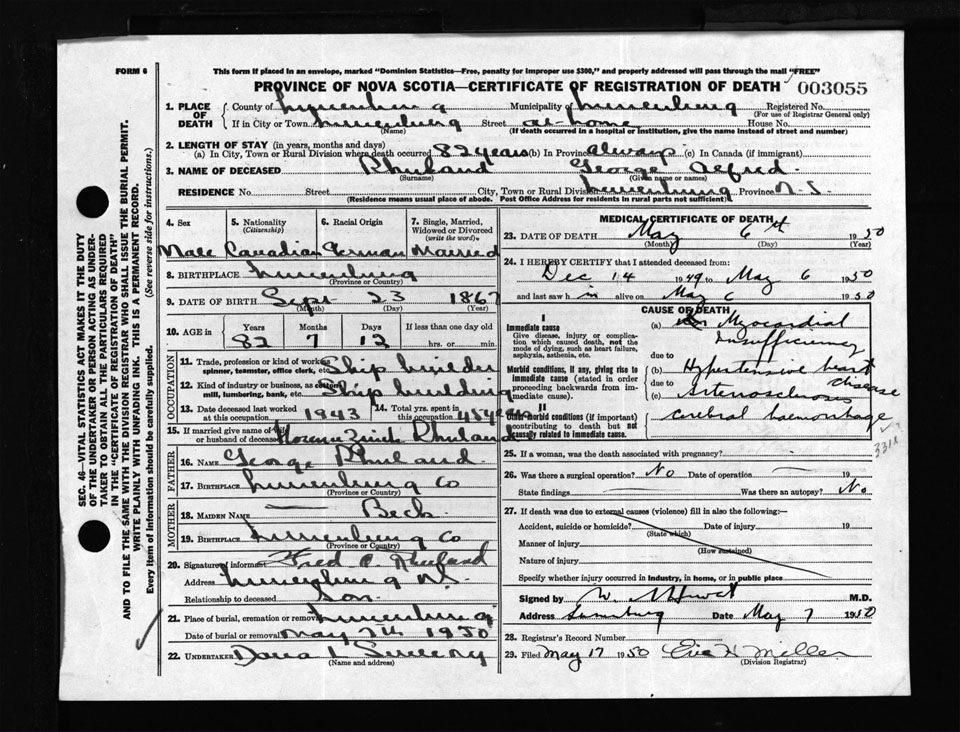 FORM 6
This form if placed in an envelope, marked "Dominion Statistics—Free, penalty for improper use $300," and properly addressed will pass through the mail "FREE"
PROVINCE OF NOVA SCOTIA—CERTIFICATE OF REGISTRATION OF DEATH 003055
SEC. 46—VITAL STATISTICS ACT MAKES IT THE DUTY
OF THE UNDERTAKER OR PERSON ACTING AS UNDER-
TAKER TO OBTAIN ALL THE PARTICULARS REQUIRED
IN THE "CERTIFICATE OF REGISTRATION OF DEATH"
AND TO FILE THE SAME WITH THE DIVISION REGISTRAR WHO SHALL ISSUE THE BURIAL PERMIT.
WRITE PLAINLY WITH UNFADING INK. THIS IS A PERMANENT RECORD.
Every item of information should be carefully supplied. (See reverse side for instructions.)
1. PLACE OF DEATH County of Lunenburg Municipality of Lunenburg Registered No.
(For use of Registrar General only)
If in City or Town Lunenburg Street at home House No.
(Name) (If death occurred in a hospital or institution, give the name instead of street and number)
2. LENGTH OF STAY (in years, months and days)
(a) In City, Town or Rural Division where death occurred 82 years (b) In Province always (c) In Canada (if immigrant)
3. NAME OF DECEASED Rhuland George Alfred
(Surname) (Given name or names)
RESIDENCE No. Street City, Town or Rural Division Lunenburg Province N.S.
(Residence means usual place of abode. Post Office Address for residents in rural parts not sufficient)
4. Sex 5. Nationality (Citizenship) 6. Racial Origin 7. Single, Married, Widowed or Divorced (write the word)
Male Canadian German Married
8. BIRTHPLACE Lunenburg
(Province or Country)
9. DATE OF BIRTH Sept 23 1867
(Month) (Day) (Year)
10. AGE in Years Months Days If less than one day old
82 7 12 hrs. or min.
OCCUPATION
11. Trade, profession or kind of work as spinner, teamster, office clerk, etc. Ship builder
12. Kind of industry or business, as cotton mill, lumbering, bank, etc. Ship building
13. Date deceased last worked at this occupation 1943 14. Total yrs. spent in this occupation 45 years
15. If married give name of wife or husband of deceased Florence Zinck Rhuland
FATHER
16. NAME George Rhuland
17. BIRTHPLACE Lunenburg Co
(Province or Country)
MOTHER
18. MAIDEN NAME — Beck
19. BIRTHPLACE Lunenburg Co
(Province or Country)
20. Signature of informant Fred C. Rhuland
Address Lunenburg N.S.
Relationship to deceased Son
21. Place of burial, cremation or removal Lunenburg
Date of burial or removal May 7th 1950
22. UNDERTAKER Dana L Sweeny
(Name and address)
MEDICAL CERTIFICATE OF DEATH
23. DATE OF DEATH May 6th 1950
(Month) (Day) (Year)
24. I HEREBY CERTIFY that I attended deceased from:
Dec 14 1949 to May 6 1950
and last saw h im alive on May 6 1950
CAUSE OF DEATH
I
Immediate cause (a) Myocardial
Give disease, injury or complication which caused death, not the mode of dying, such as heart failure, asphyxia, asthenia, etc. Insufficiency
due to
Morbid conditions, if any, giving rise to immediate cause (stated in order proceeding backwards from immediate cause). (b) Hypertensive heart disease
due to
(c) Arteriosclerosis
II
Other morbid conditions (if important) contributing to death but not causally related to immediate cause. cerebral haemorrhage
25. If a woman, was the death associated with pregnancy?
26. Was there a surgical operation? No Date of operation 19
State findings Was there an autopsy? No
27. If death was due to external causes (violence) fill in also the following:—
Accident, suicide or homicide? Date of injury 19
(State which)
Manner of injury
(How sustained)
Nature of injury
Specify whether injury occurred in industry, in home, or in public place
Signed by M.D.
Address Lunenburg Date May 7 1950
28. Registrar's Record Number
29. Filed May 17 1950 Eric H Miller
(Division Registrar)